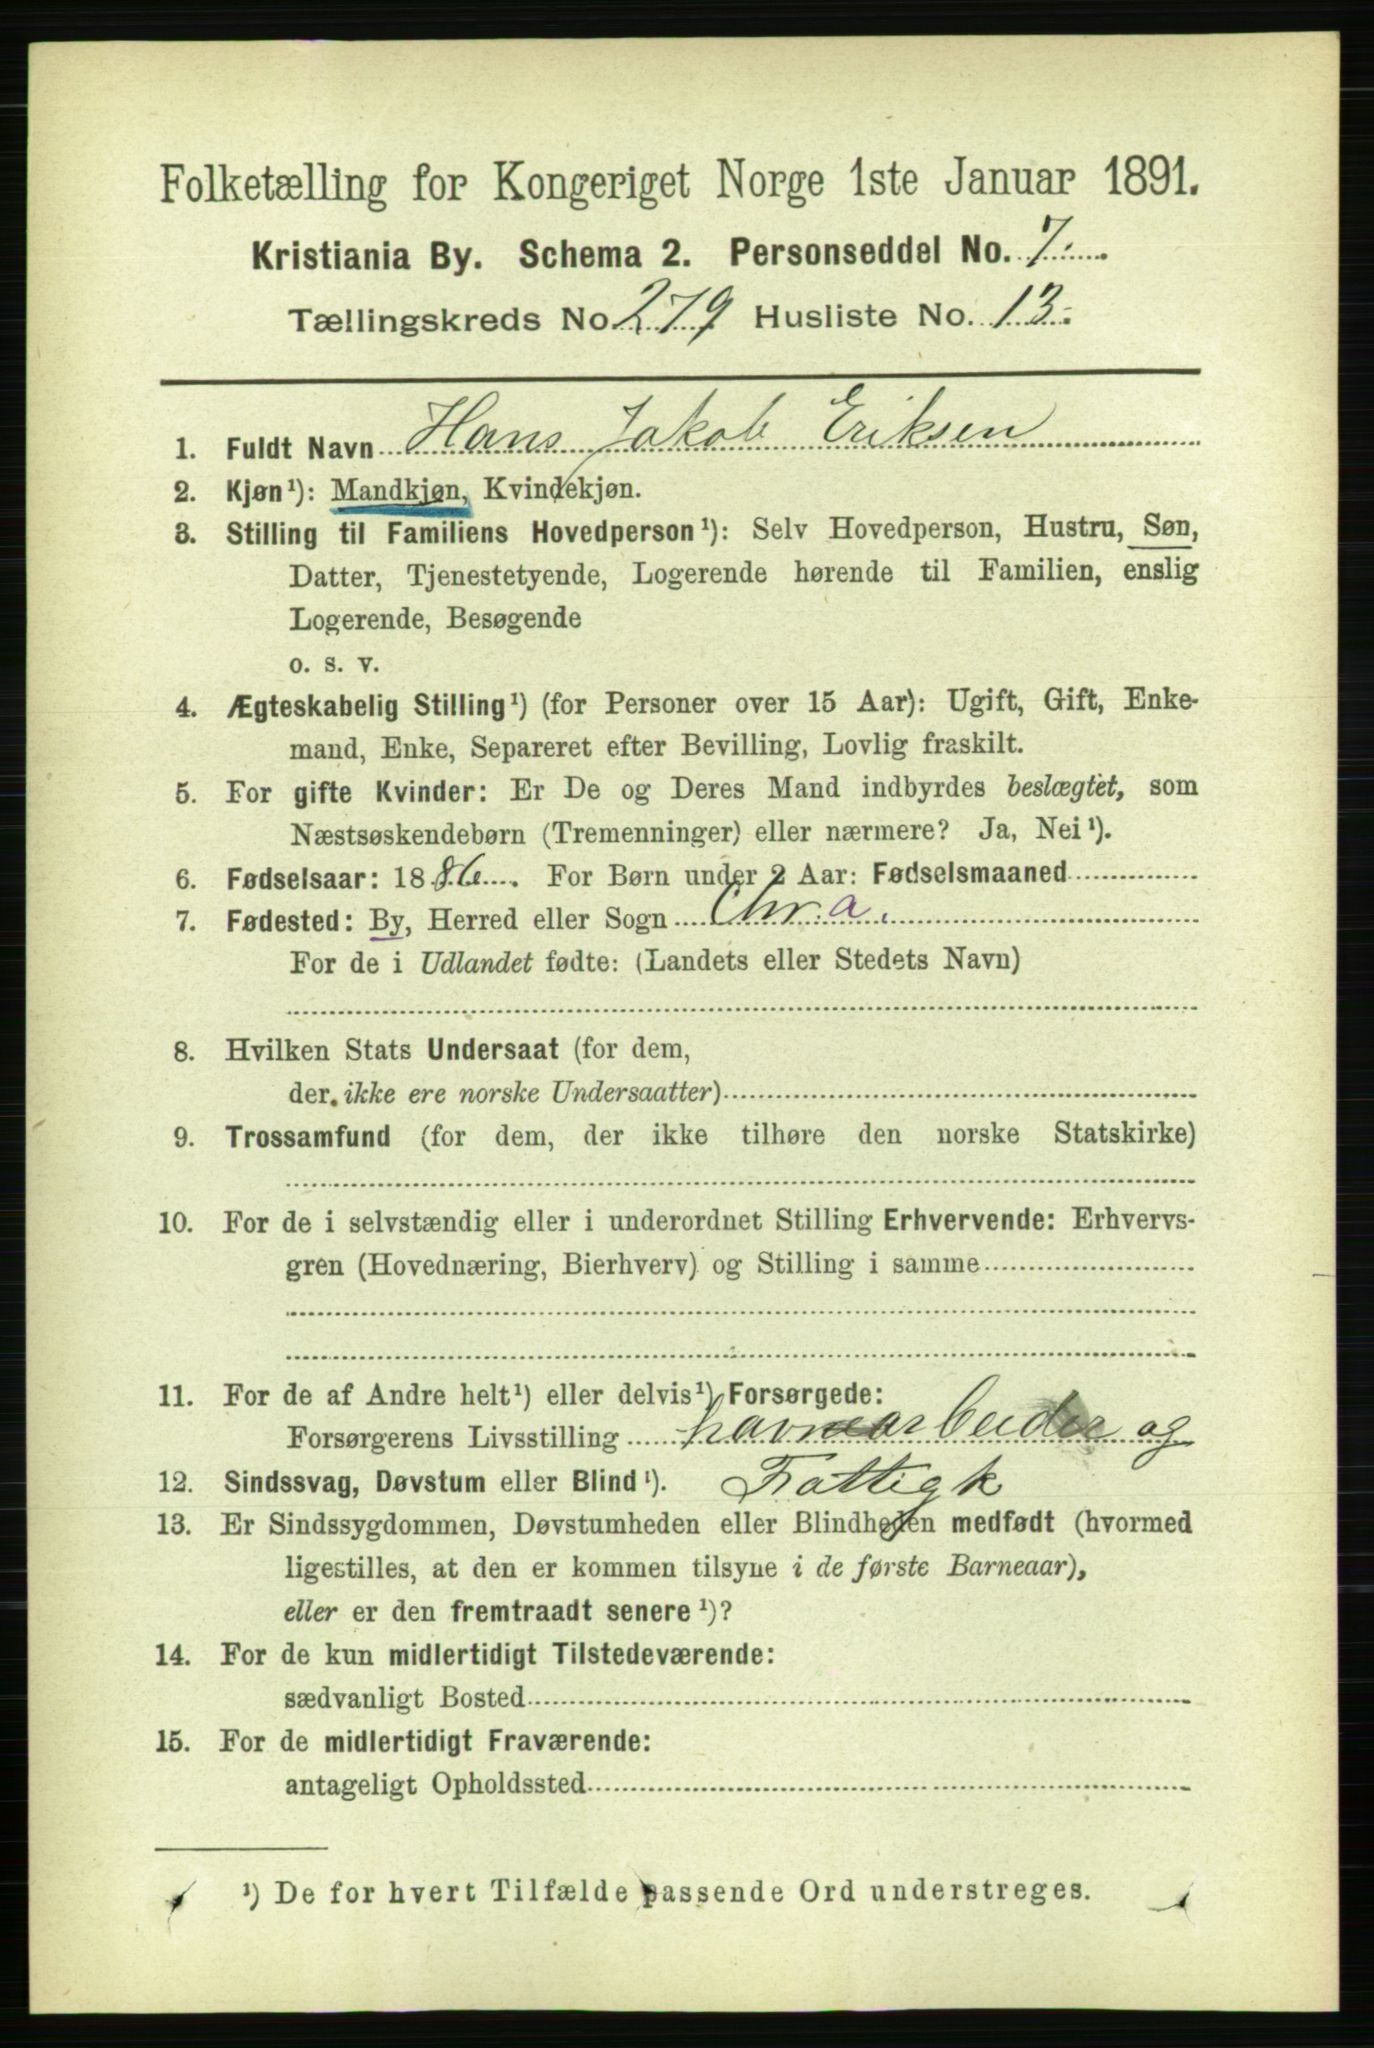 Folketælling for Kongeriget Norge 1ste Januar 1891.
Kristiania By. Schema 2. Personseddel No. 7.
Tællingskreds No. 279 Husliste No. 13.
1. Fuldt Navn Hans Jakob Eriksen
2. Kjøn¹): Mandkjøn, Kvindekjøn.
3. Stilling til Familiens Hovedperson¹): Selv Hovedperson, Hustru, Søn,
Datter, Tjenestetyende, Logerende hørende til Familien, enslig
Logerende, Besøgende
o. s. v.
4. Ægteskabelig Stilling¹) (for Personer over 15 Aar): Ugift, Gift, Enke-
mand, Enke, Separeret efter Bevilling, Lovlig fraskilt.
5. For gifte Kvinder: Er De og Deres Mand indbyrdes beslægtet, som
Næstsøskendebørn (Tremenninger) eller nærmere? Ja, Nei¹).
6. Fødselsaar: 1886. For Børn under 2 Aar: Fødselsmaaned
7. Fødested: By, Herred eller Sogn Chr.a.
For de i Udlandet fødte: (Landets eller Stedets Navn)
8. Hvilken Stats Undersaat (for dem,
der ikke ere norske Undersaatter)
9. Trossamfund (for dem, der ikke tilhøre den norske Statskirke)
10. For de i selvstændig eller i underordnet Stilling Erhvervende: Erhvervs-
gren (Hovednæring, Bierhverv) og Stilling i samme
11. For de af Andre helt¹) eller delvis¹) Forsørgede:
Forsørgerens Livsstilling havnearbeider og
12. Sindssvag, Døvstum eller Blind¹). Fattigk
13. Er Sindssygdommen, Døvstumheden eller Blindheden medfødt (hvormed
ligestilles, at den er kommen tilsyne i de første Barneaar),
eller er den fremtraadt senere¹)?
14. For de kun midlertidigt Tilstedeværende:
sædvanligt Bosted
15. For de midlertidigt Fraværende:
antageligt Opholdssted
¹) De for hvert Tilfælde passende Ord understreges.